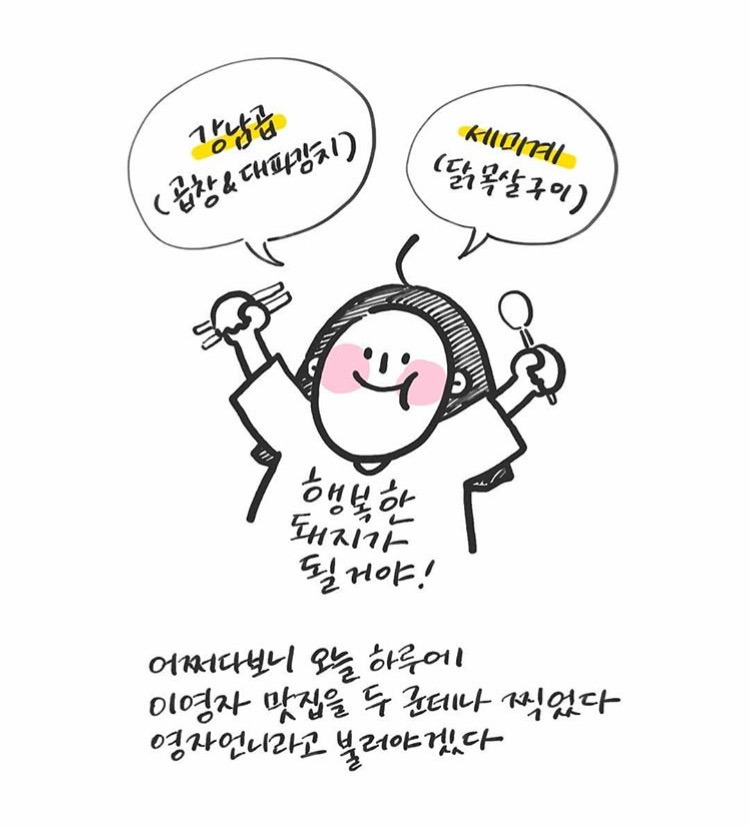 강남곱
(곱창&대파김치)
세미계
(닭목살구이)
행복한
돼지가
될거야!
어쩌다보니 오늘 하루에
이영자 맛집을 두 군데나 찍었다
영자언니라고 불러야겠다